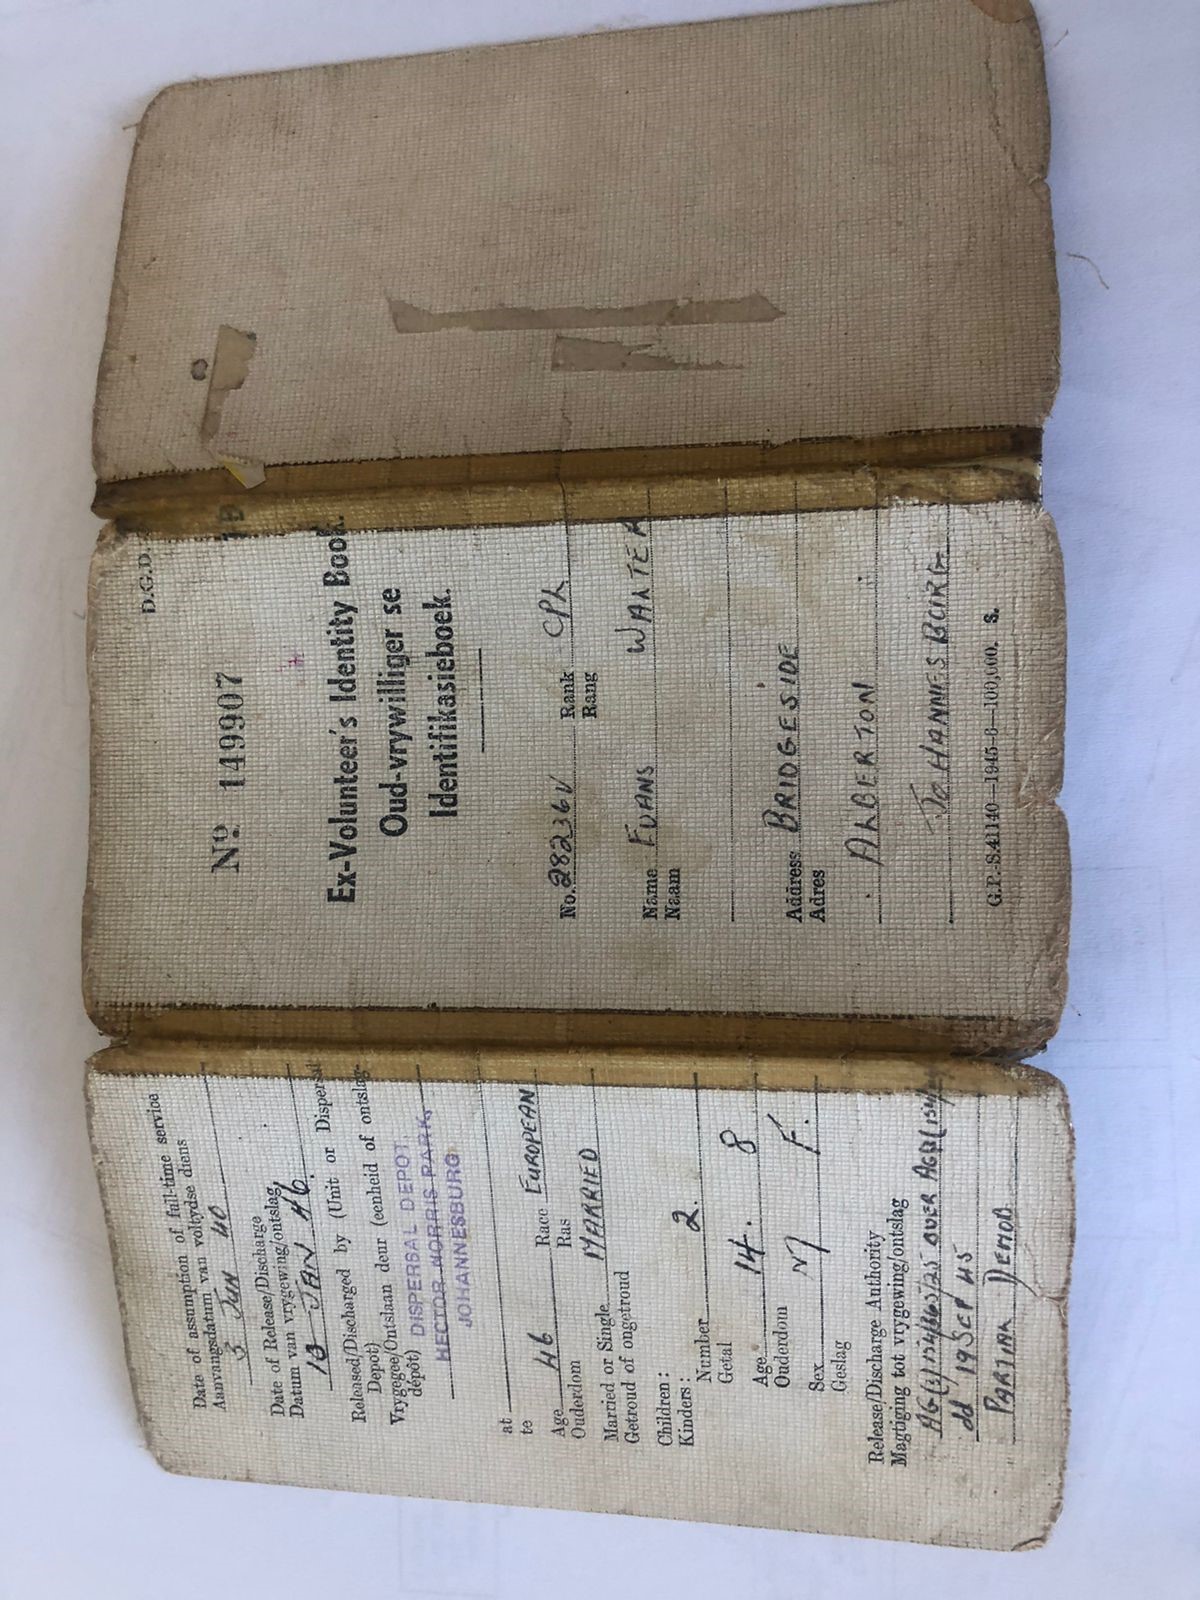 D.G.D.
Nº 149907
Ex-Volunteer's Identity Book.
Oud-vrywilliger se
Identifikasieboek.
No. 28236V Rank CPL
Rang
Name EVANS WALTER
Naam
Address BRIDGESIDE
Adres
ALBERTON
JOHANNESBURG
G.P.-S.41140—1945-6—100,000. S.
Date of assumption of full-time service
Aanvangsdatum van voltydse diens
3 JUN 40
Date of Release/Discharge
Datum van vrygewing/ontslag
10 JAN 46.
Released/Discharged by (Unit or Dispersal
Depot)
Vrygegee/Ontslaan deur (eenheid of ontslag-
dépôt) DISPERSAL DEPOT,
HECTOR NORRIS PARK,
JOHANNESBURG
at
te
Age 46 Race EUROPEAN
Ouderdom Ras
Married or Single MARRIED
Getroud of ongetroud
Children:
Kinders:
Number 2.
Getal
Age 14. 8
Ouderdom
Sex M F.
Geslag
Release/Discharge Authority
Magtiging tot vrygewing/ontslag
OVER
dd 19 SEP 45
PARTIAL DEMOB